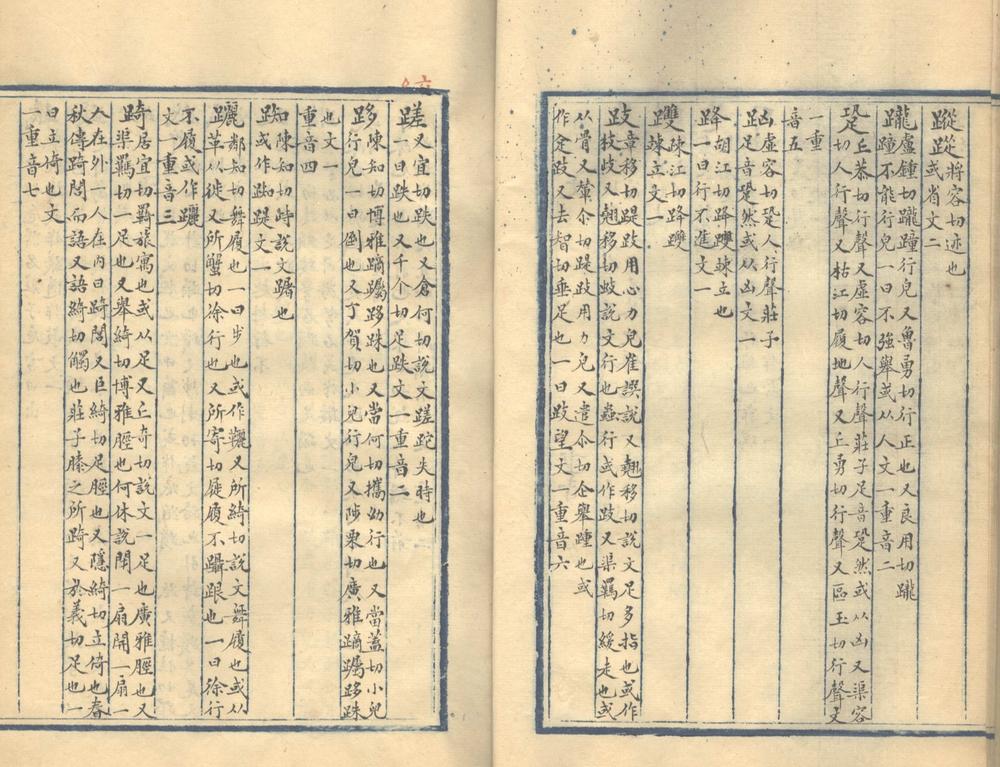 蹤𨂴將容切迹也
或省文二
躘盧鍾切躘蹱行皃又魯勇切行正也又良用切躘
蹱不能行皃一曰不強舉或从人文一重音二
跫丘恭切行聲又虛容切人行聲莊子足音跫然或从凶又渠容
切人行聲又枯江切履地聲又丘勇切行聲又區玉切行聲文
一重
音五
𧿫虛容切跫人行聲莊子
足音跫然或从凶文一
跭胡江切跭躞竦立也
一曰行不進文一
躞疎江切跭躞
竦立文一
跂章移切踶跂用心力皃崔譔說又翹移切說文足多指也或作
枝歧又翹移切蚑說文行也蟲行或作跂又渠羈切緩走也或
从骨又輂尒切踶跂用力皃又遣尒切企舉踵也或
作𧿳跂又去智切垂足也一曰跂望文一重音六
蹉又宜切跌也又倉何切說文蹉跎失時也
一曰跌也又千个切足跌文一重音二
跢陳知切博雅蹢躅跢跦也又當何切攜幼行也又當蓋切小兒
行皃一曰倒也又丁賀切小兒行皃又陟栗切廣雅蹢躅跢跦
也文一
重音四
踟陳知切峙說文躅也
或作踟踶文一
躧鄰知切舞履也一曰步也或作䍦又所綺切說文舞履也或从
革从徙又所蟹切徐行也又所寄切屣履不躡跟也一曰徐行
不履或作躧
文一重音三
踦居宜切羇旅寓也或从足又丘奇切說文一足也廣雅脛也又
渠羈切一足也又舉綺切博雅脛也何休說閉一扇開一扇一
人在外一人在內曰踦閭又巨綺切足脛也又隱綺切立倚也春
秋傳踦閭而語又語綺切觸也莊子膝之所踦又於義切足也一
曰立倚也文
一重音七